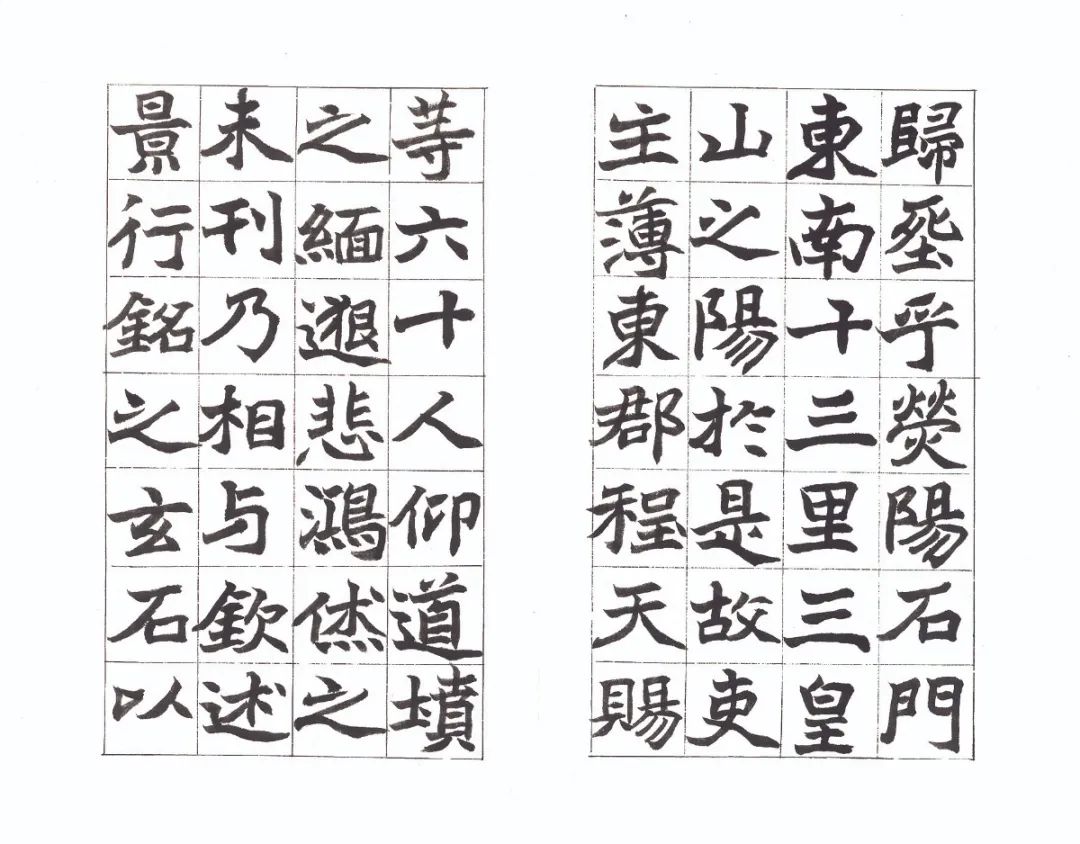 歸塟乎熒陽石門
東南十三里三皇
山之陽於是故吏
主薄東郡程天賜
等六十人仰道墳
之緬邈悲鴻烋之
未刊乃相与欽述
景行銘之玄石以